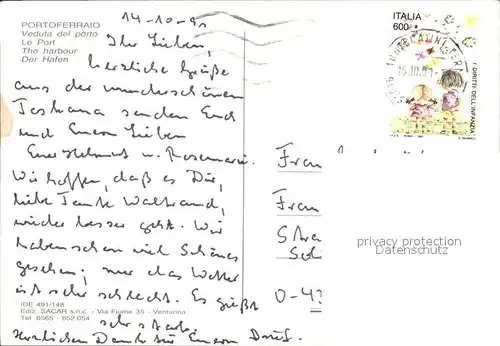 PORTOFERRAIO
Veduta del pòrto
Le Port
The harbour
Der Hafen
14-10-91
Ihr Lieben,
herzliche Grüße
aus der wunderschönen
Toskana senden Euch
und Euern Lieben
Euer Helmut u. Rosemarie.
Wir hoffen, daß es Dir,
liebe Tante Waltraud,
wieder besser geht. Wir
haben schon viel Schönes
gesehen; nur das Wetter
ist sehr schlecht. Es grüßt
sehr stark.
Herzlichen Dank für Euern Brief.
IDE 491/148
Ediz. SACAR s.n.c. - Via Fiume 35 - Venturina
Tel 0565 - 852.054
ITALIA
600
I DIRITTI DELL'INFANZIA
Frau
Frau
Stra
D-4
privacy protection
Datenschutz